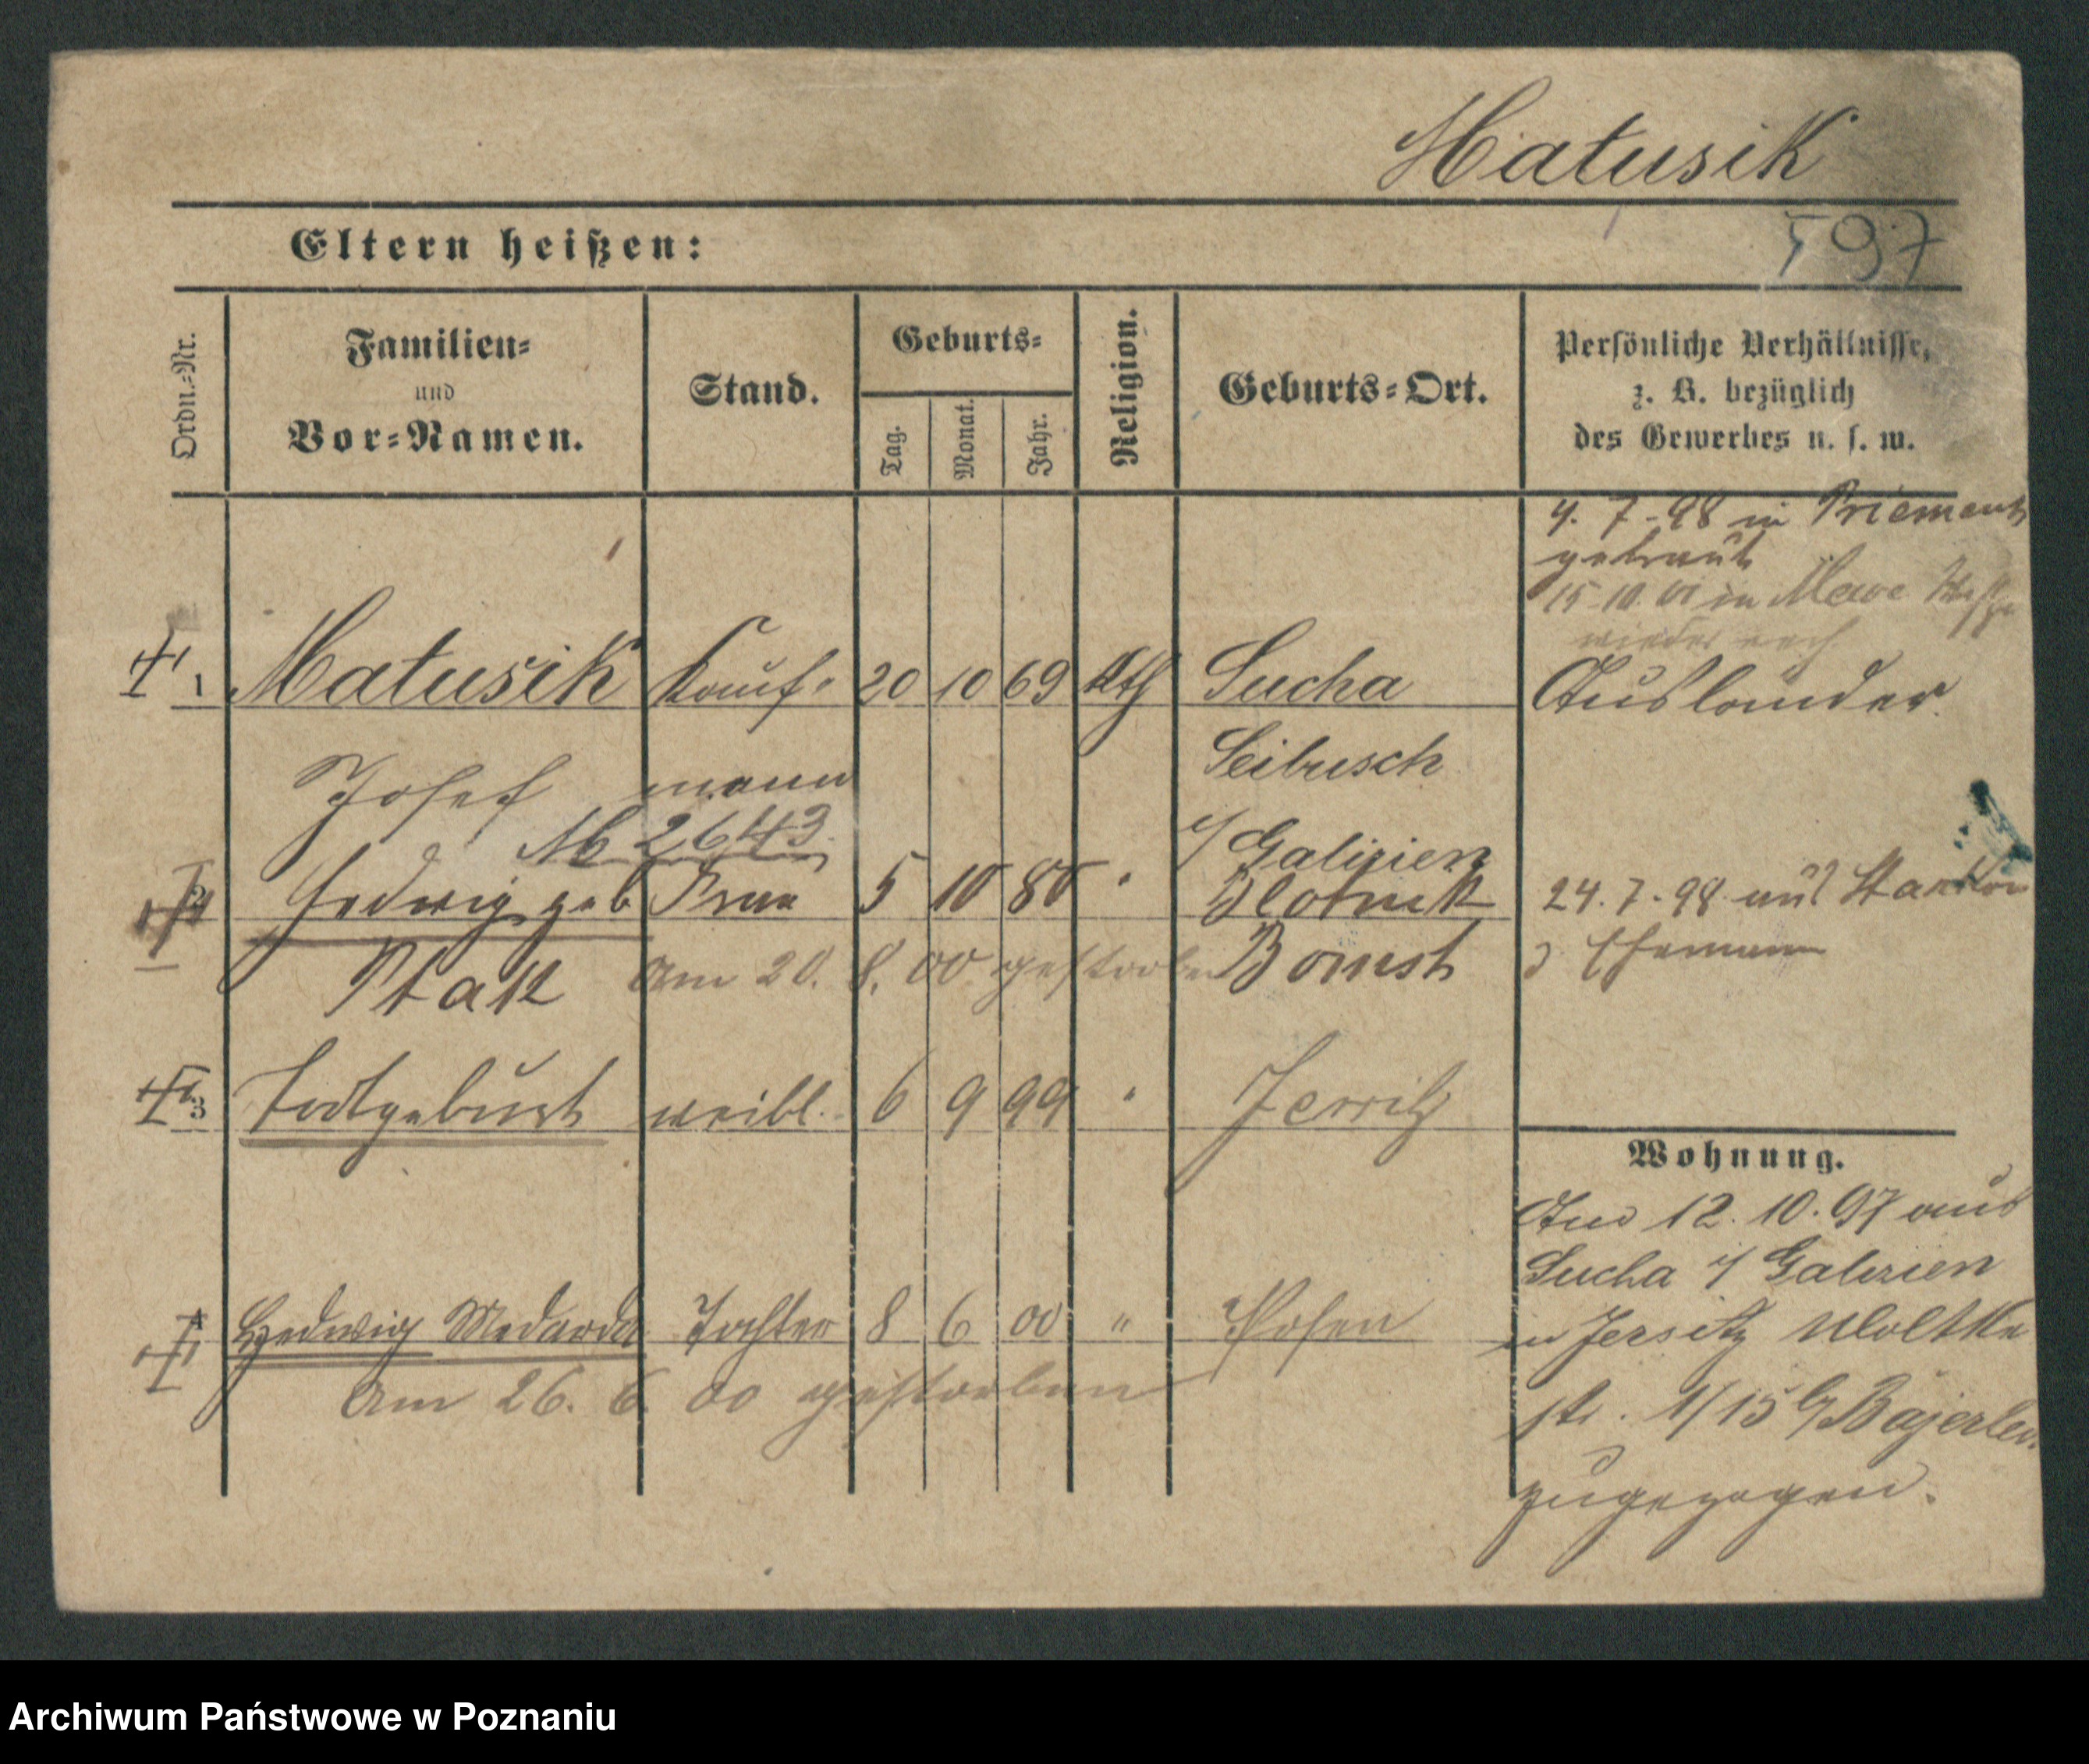 Matusik
Eltern heißen:
97
Ordn.-Nr.
Familien-
und
Vor-Namen.
Stand.
Geburts-
Tag.
Monat.
Jahr.
Religion.
Geburts-Ort.
Persönliche Verhältnisse,
z. B. bezüglich
des Gewerbes u. s. w.
4. 7. 98 in Priement
getraut
15 10. 01 in Mewe
wieder verh.
1 Matusik Kauf- 20 10 69 kth Sucha Ausländer.
Josef mann Seibusch
No 2643 Galizien
2 Hedwig geb Frau 5 10 80 " Blotnik 24. 7. 98 aus
Ptak am 20. 8. 00 gestorben Bomst Ehemann
3 Todtgeburt weibl. 6 9 99 " Jersitz
Wohnung.
Am 12. 10. 97 aus
Sucha / Galizien
in Jersitz Moltke
str. 1/15 b/ Bajerlein
zugezogen.
4 Hedwig Medarda Tochter 8 6 00 " Posen
am 26. 6. 00 gestorben
Archiwum Państwowe w Poznaniu